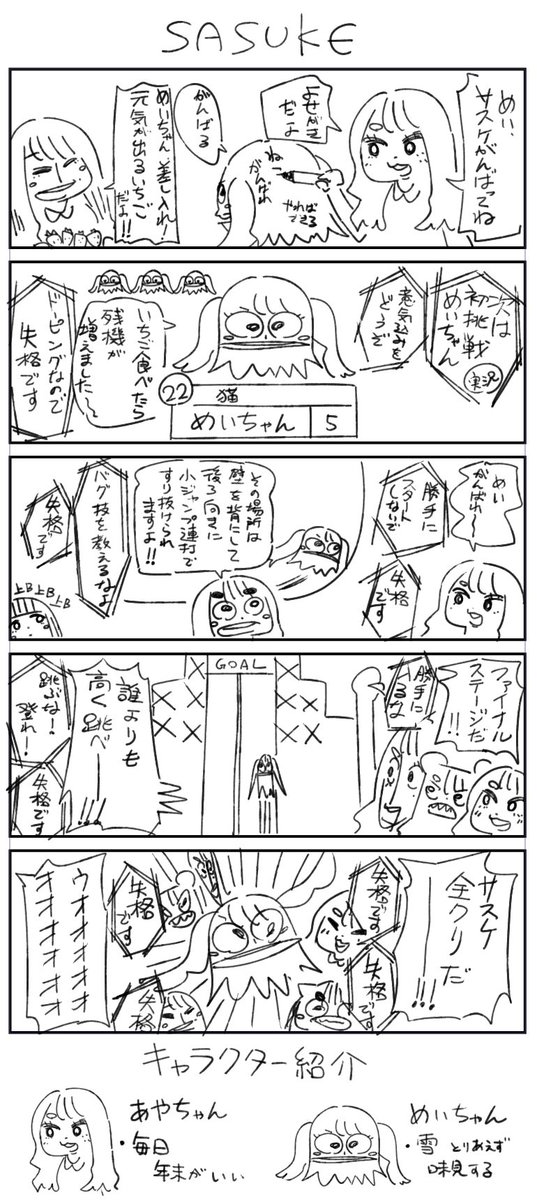 SASUKE
めい、
サスケがんばってね
よせがき
だよ
ねこ
がんばれ
やれば
できる
がんばる
めいちゃん差し入れ!
元気が出るいちご
だよ!!
次は
初挑戦
めいちゃん
実況
意気込みを
どうぞ
いちご食べたら
残機が
増えました〜
ドーピングなので
失格です
22
猫
めいちゃん
5
めい
がんばれ〜
勝手に
スタート
しないで
失格
です
その場所は
壁を背にして
後ろ向きに
小ジャンプ連打で
すり抜けられ
ますよ!!
バグ技を教えるなよ
失格
です
上B上B上B
ファイナル
ステージだ
!!
勝手に
入るな
GOAL
誰よりも
高く跳べ
!!!
跳ぶな!
登れ!
失格です
サスケ
全クリだ
!!!
失格です
失格です
失格
です
失格
ウオオオオオ
オオオオオオ
キャラクター紹介
あやちゃん
・毎日
年末がいい
めいちゃん
・雪 とりあえず
味見する